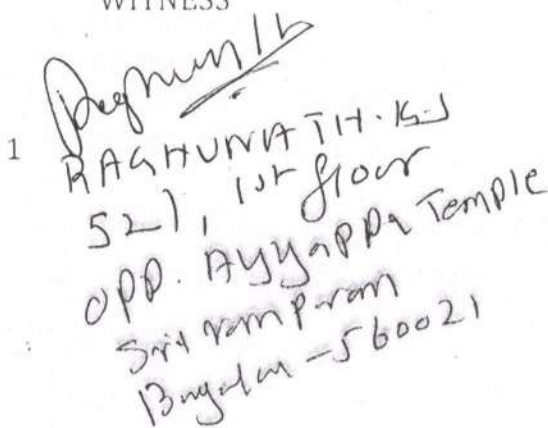 WITNESS
1
RAGHUNATH. K.J
521, 1st floor
opp. Ayyappa Temple
Srirampuram
Bangalore - 560021